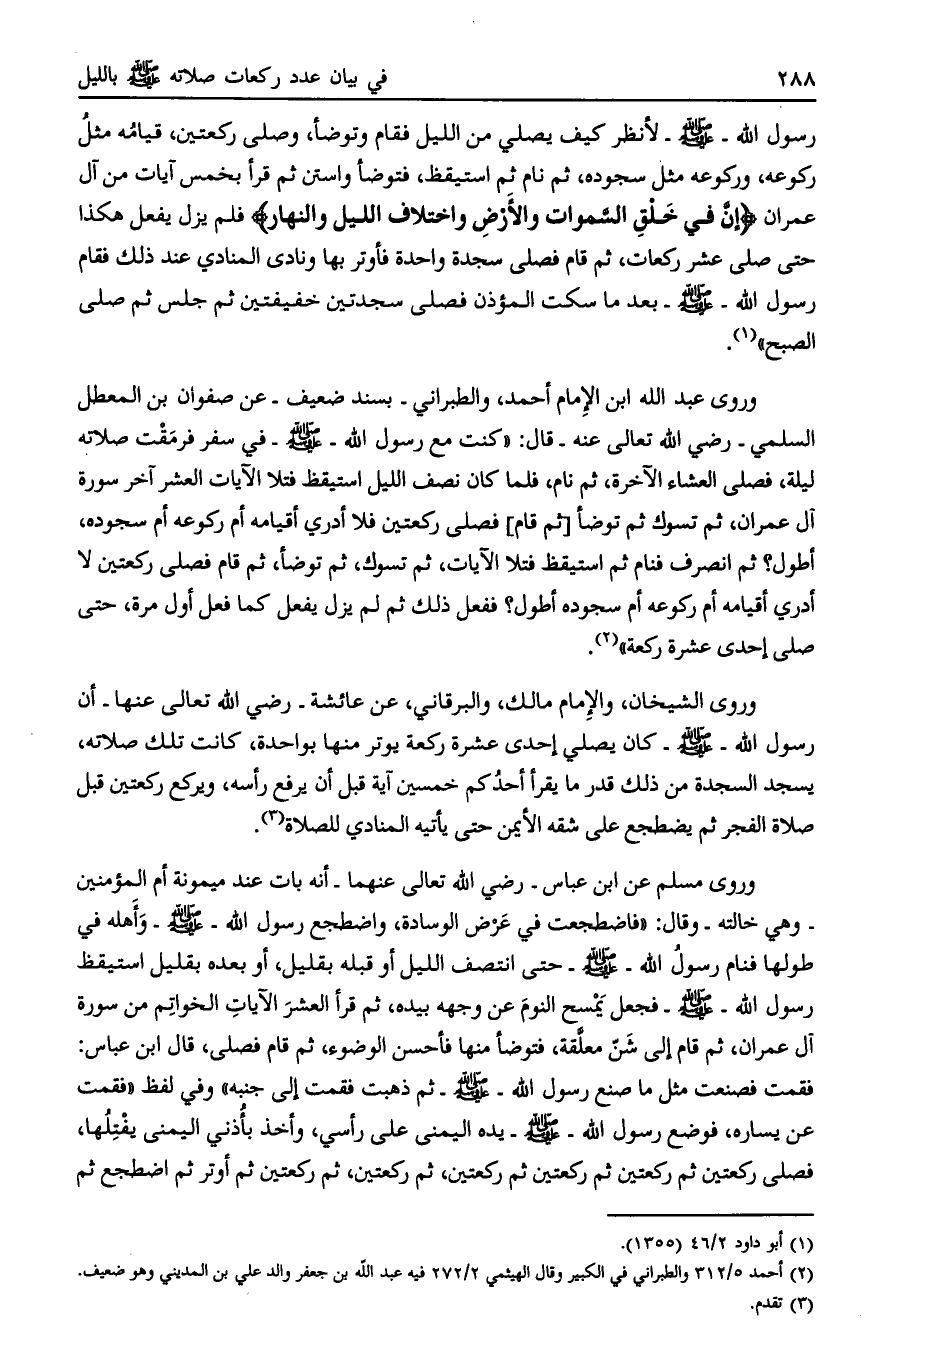 ٢٨٨ في بيان عدد ركعات صلاته ﷺ بالليل
رسول الله ـ ﷺ ـ لأنظر كيف يصلي من الليل فقام وتوضأ، وصلى ركعتين، قيامُه مثلُ
ركوعه، وركوعه مثل سجوده، ثم نام ثم استيقظ، فتوضأ واستن ثم قرأ بخمس آيات من آل
عمران ﴿إنَّ في خَلْقِ السَّموات والأَرْضِ واختلاف الليل والنهار﴾ فلم يزل يفعل هكذا
حتى صلى عشر ركعات، ثم قام فصلى سجدة واحدة فأوتر بها ونادى المنادي عند ذلك فقام
رسول الله ـ ﷺ ـ بعد ما سكت المؤذن فصلى سجدتين خفيفتين ثم جلس ثم صلى
الصبح»(١).
وروى عبد الله ابن الإمام أحمد، والطبراني ـ بسند ضعيف ـ عن صفوان بن المعطل
السلمي ـ رضي الله تعالى عنه ـ قال: «كنت مع رسول الله ـ ﷺ ـ في سفر فرمَقْت صلاته
ليلة، فصلى العشاء الآخرة، ثم نام، فلما كان نصف الليل استيقظ فتلا الآيات العشر آخر سورة
آل عمران، ثم تسوك ثم توضأ [ثم قام] فصلى ركعتين فلا أدري أقيامه أم ركوعه أم سجوده،
أطول؟ ثم انصرف فنام ثم استيقظ فتلا الآيات، ثم تسوك، ثم توضأ، ثم قام فصلى ركعتين لا
أدري أقيامه أم ركوعه أم سجوده أطول؟ ففعل ذلك ثم لم يزل يفعل كما فعل أول مرة، حتى
صلى إحدى عشرة ركعة»(٢).
وروى الشيخان، والإمام مالك، والبرقاني، عن عائشة ـ رضي الله تعالى عنها ـ أن
رسول الله ـ ﷺ ـ كان يصلي إحدى عشرة ركعة يوتر منها بواحدة، كانت تلك صلاته،
يسجد السجدة من ذلك قدر ما يقرأ أحدُكم خمسين آية قبل أن يرفع رأسه، ويركع ركعتين قبل
صلاة الفجر ثم يضطجع على شقه الأيمن حتى يأتيه المنادي للصلاة(٣).
وروى مسلم عن ابن عباس ـ رضي الله تعالى عنهما ـ أنه بات عند ميمونة أم المؤمنين
ـ وهي خالته ـ وقال: «فاضطجعت في عَرْض الوسادة، واضطجع رسول الله ـ ﷺ ـ وَأَهله في
طولها فنام رسولُ الله ـ ﷺ ـ حتى انتصف الليل أو قبله بقليل، أو بعده بقليل استيقظ
رسول الله ـ ﷺ ـ فجعل يَمْسح النومَ عن وجهه بيده، ثم قرأ العشرَ الآياتِ الخواتِم من سورة
آل عمران، ثم قام إلى شَنّ معلَّقة، فتوضأ منها فأحسن الوضوء، ثم قام فصلى، قال ابن عباس:
فقمت فصنعت مثل ما صنع رسول الله ـ ﷺ ـ ثم ذهبت فقمت إلى جنبه» وفي لفظ «فقمت
عن يساره، فوضع رسول الله ـ ﷺ ـ يده اليمنى على رأسي، وأخذ بأُذني اليمنى يفْتِلُها،
فصلى ركعتين ثم ركعتين ثم ركعتين ثم ركعتين، ثم ركعتين، ثم ركعتين ثم أوتر ثم اضطجع ثم
(١) أبو داود ٤٦/٢ (١٣٥٥).
(٢) أحمد ٣١٢/٥ والطبراني في الكبير وقال الهيثمي ٢٧٢/٢ فيه عبد الله بن جعفر والد علي بن المديني وهو ضعيف.
(٣) تقدم.